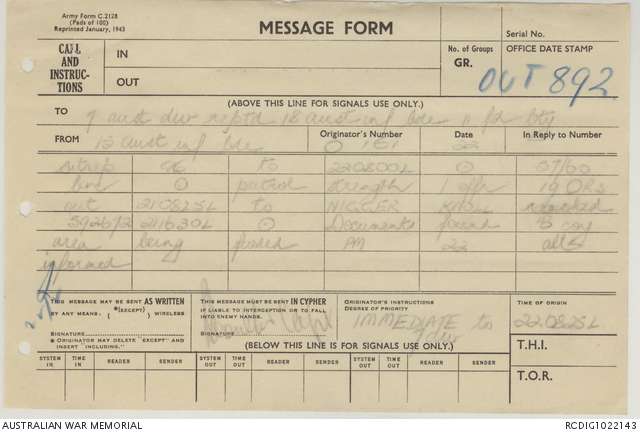 Army Form C.2128
(Pads of 100)
Reprinted January, 1943
MESSAGE FORM
Serial No.
CALL AND INSTRUCTIONS
IN
OUT
No. of Groups
GR.
OFFICE DATE STAMP
OUT 892
(ABOVE THIS LINE FOR SIGNALS USE ONLY.)
TO 9 aust div reptd 18 aust inf bde 11 fd bty
FROM 15 aust inf bde
Originator's Number
O 151
Date
22
In Reply to Number
sitrep to 220800L O 57/60
bn O patrol strength 1 offr 19 ORs
out 210825L to NIGGER KNOLL reached
592672 211630L O Documents found B coy
area being fwded AM 22 all
informed
THIS MESSAGE MAY BE SENT AS WRITTEN
BY ANY MEANS, ( *(EXCEPT) ) WIRELESS
SIGNATURE
* ORIGINATOR MAY DELETE "EXCEPT" AND
INSERT "INCLUDING."
THIS MESSAGE MUST BE SENT IN CYPHER
IF LIABLE TO INTERCEPTION OR TO FALL
INTO ENEMY HANDS.
SIGNATURE
ORIGINATOR'S INSTRUCTIONS
DEGREE OF PRIORITY
IMMEDIATE to
TIME OF ORIGIN
220825L
(BELOW THIS LINE IS FOR SIGNALS USE ONLY.)
T.H.I.
T.O.R.
SYSTEM IN TIME IN READER SENDER SYSTEM OUT TIME OUT READER SENDER SYSTEM OUT TIME OUT READER SENDER
AUSTRALIAN WAR MEMORIAL
RCDIG1022143